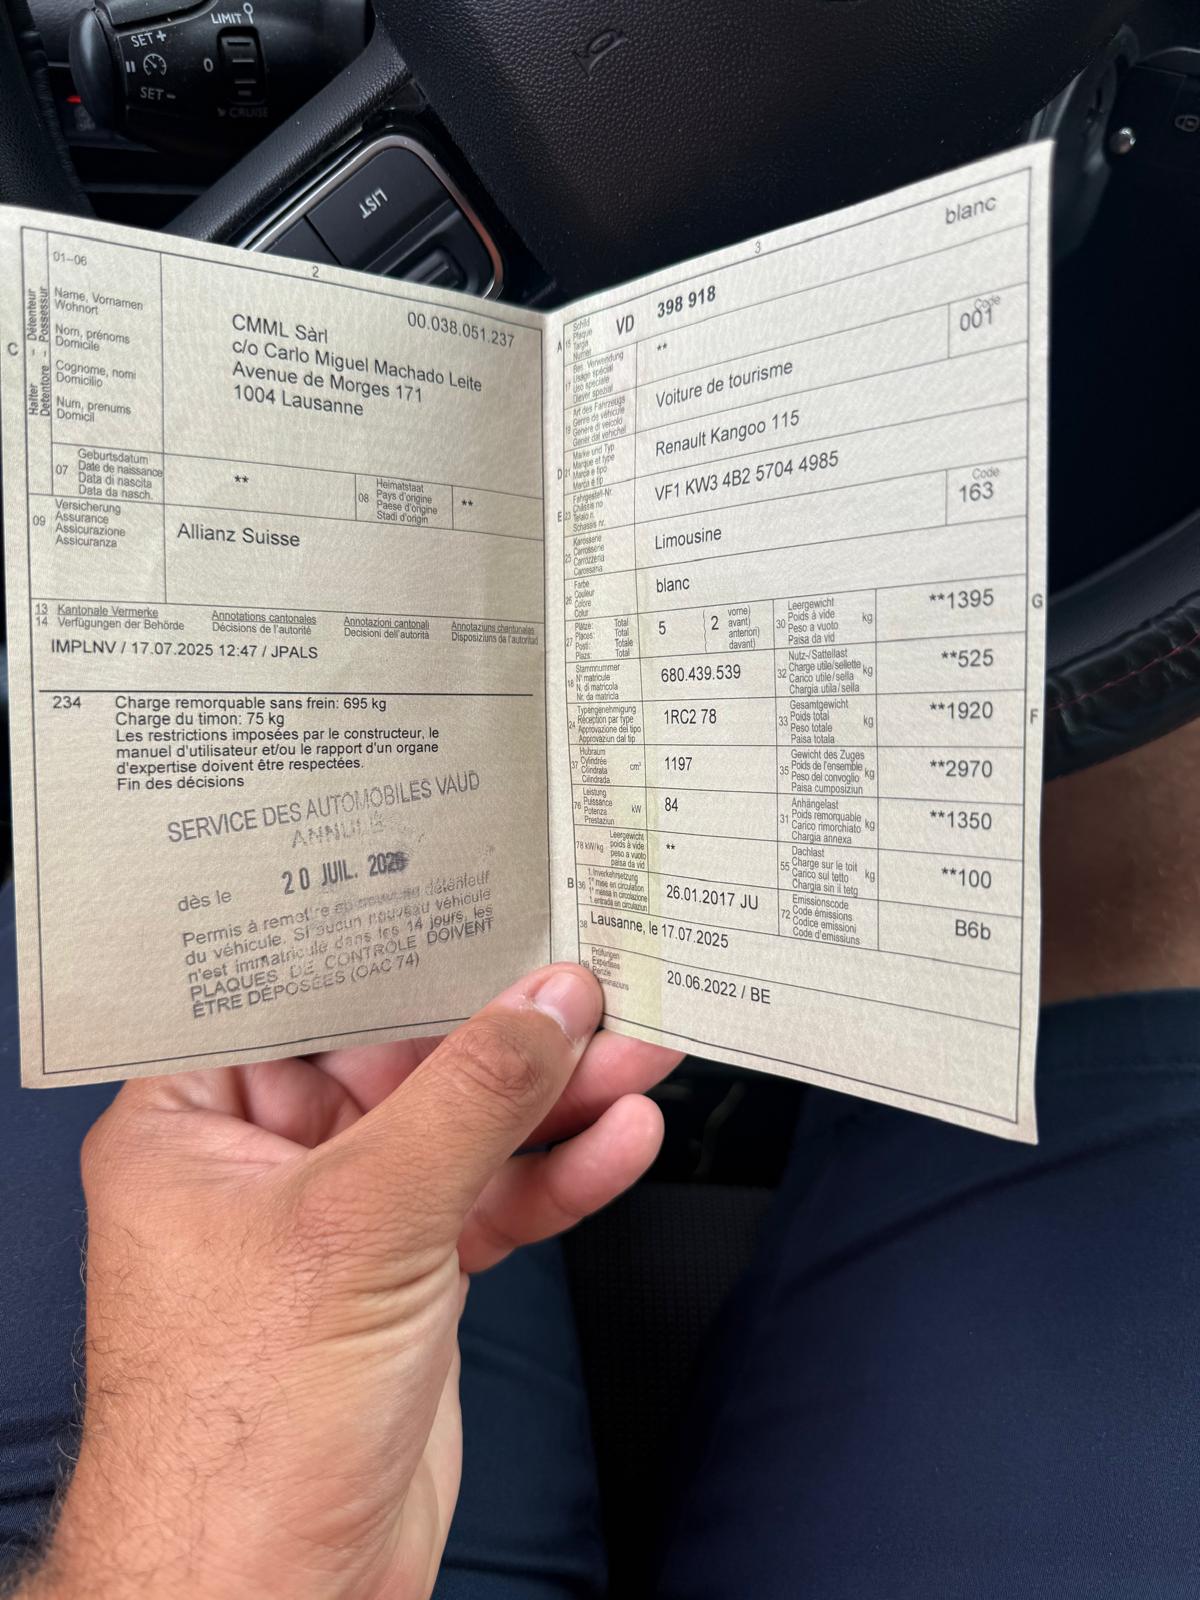 LIMIT
SET +
0
SET –
CRUISE
LIST
2
C
Halter Détenteur
Detentore Possessur
01–06
Name, Vornamen
Wohnort
Nom, prénoms
Domicile
Cognome, nomi
Domicilio
Num, prenums
Domicil
00.038.051.237
CMML Sàrl
c/o Carlo Miguel Machado Leite
Avenue de Morges 171
1004 Lausanne
07
Geburtsdatum
Date de naissance
Data di nascita
Data da nasch.
**
08
Heimatstaat
Pays d'origine
Paese d'origine
Stadi d'origin
**
09
Versicherung
Assurance
Assicurazione
Assicuranza
Allianz Suisse
13 Kantonale Vermerke Annotations cantonales Annotazioni cantonali Annotaziuns chantunales
14 Verfügungen der Behörde Décisions de l'autorité Decisioni dell'autorità Disposiziuns da l'autoritad
IMPLNV / 17.07.2025 12:47 / JPALS
234 Charge remorquable sans frein: 695 kg
Charge du timon: 75 kg
Les restrictions imposées par le constructeur, le
manuel d'utilisateur et/ou le rapport d'un organe
d'expertise doivent être respectées.
Fin des décisions
SERVICE DES AUTOMOBILES VAUD
ANNULÉ
dès le 20 JUIL. 2026
Permis à remettre au nouveau détenteur
du véhicule. Si aucun nouveau véhicule
n'est immatriculé dans les 14 jours, les
PLAQUES DE CONTRÔLE DOIVENT
ÊTRE DÉPOSÉES (OAC 74)
3
blanc
A 15 Schild
Plaque
Targa
Numer
VD 398 918
17 Bes. Verwendung
Usage spécial
Uso speciale
Diever spezial
**
19 Art des Fahrzeugs
Genre de véhicule
Genere di veicolo
Gener dal vehichel
Voiture de tourisme
Code
001
D 21 Marke und Typ
Marque et type
Marca e tipo
Marca e tip
Renault Kangoo 115
E 23 Fahrgestell-Nr.
Châssis no
Telaio n.
Schassis nr.
VF1 KW3 4B2 5704 4985
25 Karosserie
Carrosserie
Carrozzeria
Carossaria
Limousine
Code
163
26 Farbe
Couleur
Colore
Colur
blanc
27 Plätze: Total
Places: Total
Posti: Totale
Plazs: Total
5
( 2 vorne)
avant)
anteriori)
davant)
30 Leergewicht
Poids à vide
Peso a vuoto
Paisa da vid
kg
**1395
G
18 Stammnummer
N° matricule
N. di matricola
Nr. da matricla
680.439.539
32 Nutz-/Sattellast
Charge utile/sellette
Carico utile/sella
Chargia utila/sella
kg
**525
24 Typengenehmigung
Réception par type
Approvazione del tipo
Approvaziun dal tip
1RC2 78
33 Gesamtgewicht
Poids total
Peso totale
Paisa totala
kg
**1920
F
37 Hubraum
Cylindrée
Cilindrata
Cilindrada
cm³
1197
35 Gewicht des Zuges
Poids de l'ensemble
Peso del convoglio
Paisa cumposiziun
kg
**2970
76 Leistung
Puissance
Potenza
Prestaziun
kW
84
31 Anhängelast
Poids remorquable
Carico rimorchiato
Chargia annexa
kg
**1350
78 kW/kg
Leergewicht
poids à vide
peso a vuoto
paisa da vid
**
55 Dachlast
Charge sur le toit
Carico sul tetto
Chargia sin il tetg
kg
**100
B 36 1. Inverkehrsetzung
1re mise en circulation
1a messa in circolazione
1. entrada en circulaziun
26.01.2017 JU
72 Emissionscode
Code émissions
Codice emissioni
Code d'emissiuns
B6b
38 Lausanne, le 17.07.2025
Prüfungen
Expertises
Perizie
20.06.2022 / BE